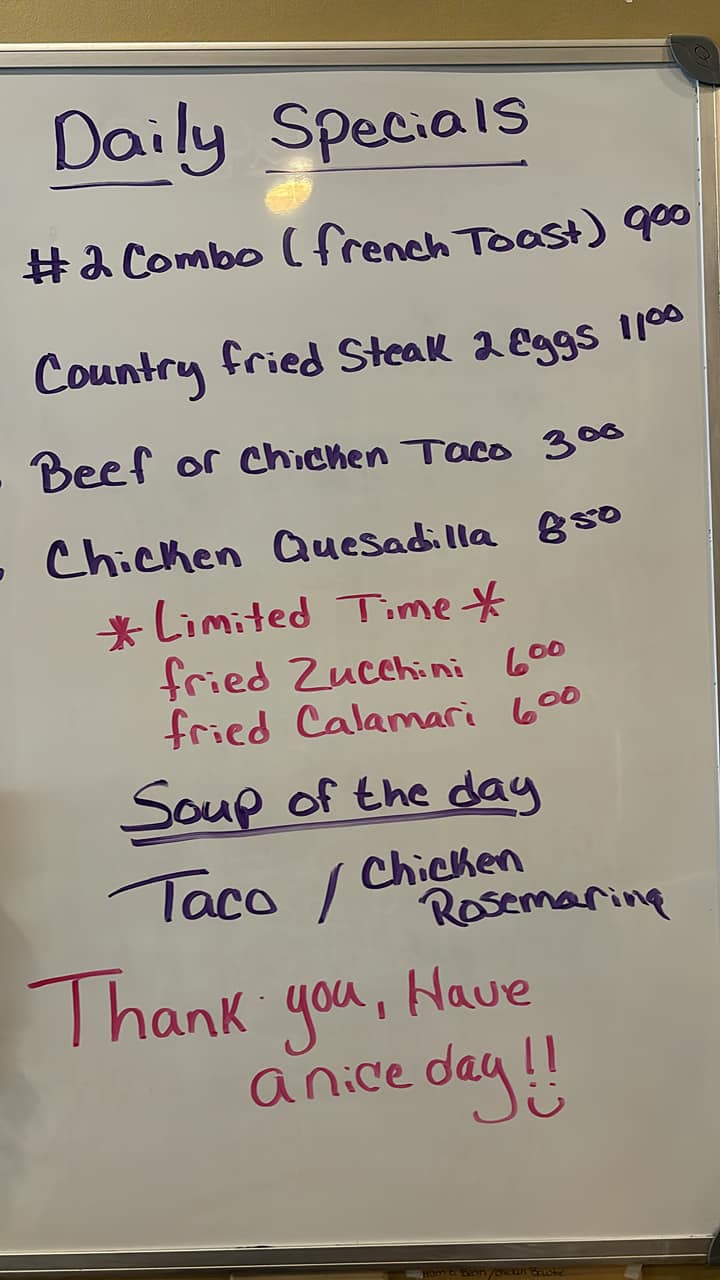 Daily Specials
#2 Combo (french Toast) 900
Country fried Steak 2 Eggs 1100
Beef or Chicken Taco 300
Chicken Quesadilla 850
*Limited Time*
fried Zucchini 600
fried Calamari 600
Soup of the day
Taco / Chicken
Rosemarine
Thank you, Have
a nice day!!